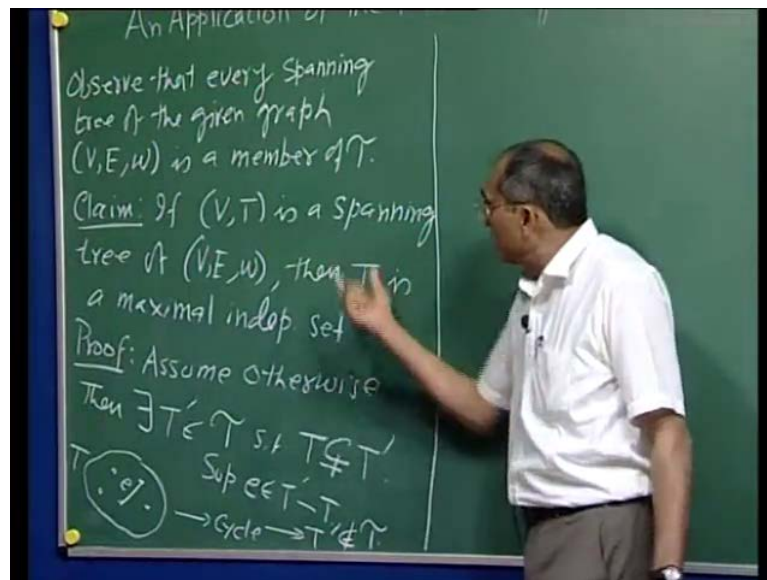 An Application of the
Observe that every Spanning
tree of the given graph
(V,E,w) is a member of 𝒯.
Claim: If (V,T) is a spanning
tree of (V,E,w), then T is
a maximal indep. set
Proof: Assume otherwise
Then ∃ T' ∈ 𝒯 s.t T ⊊ T'.
Sup e ∈ T' - T
T e
→ Cycle → T' ∉ 𝒯